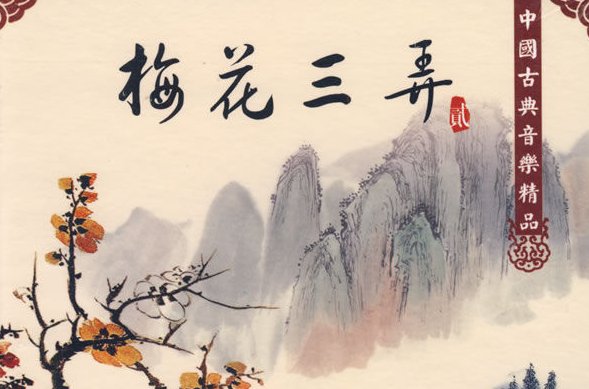 梅花三弄
貳
中國古典音樂精品